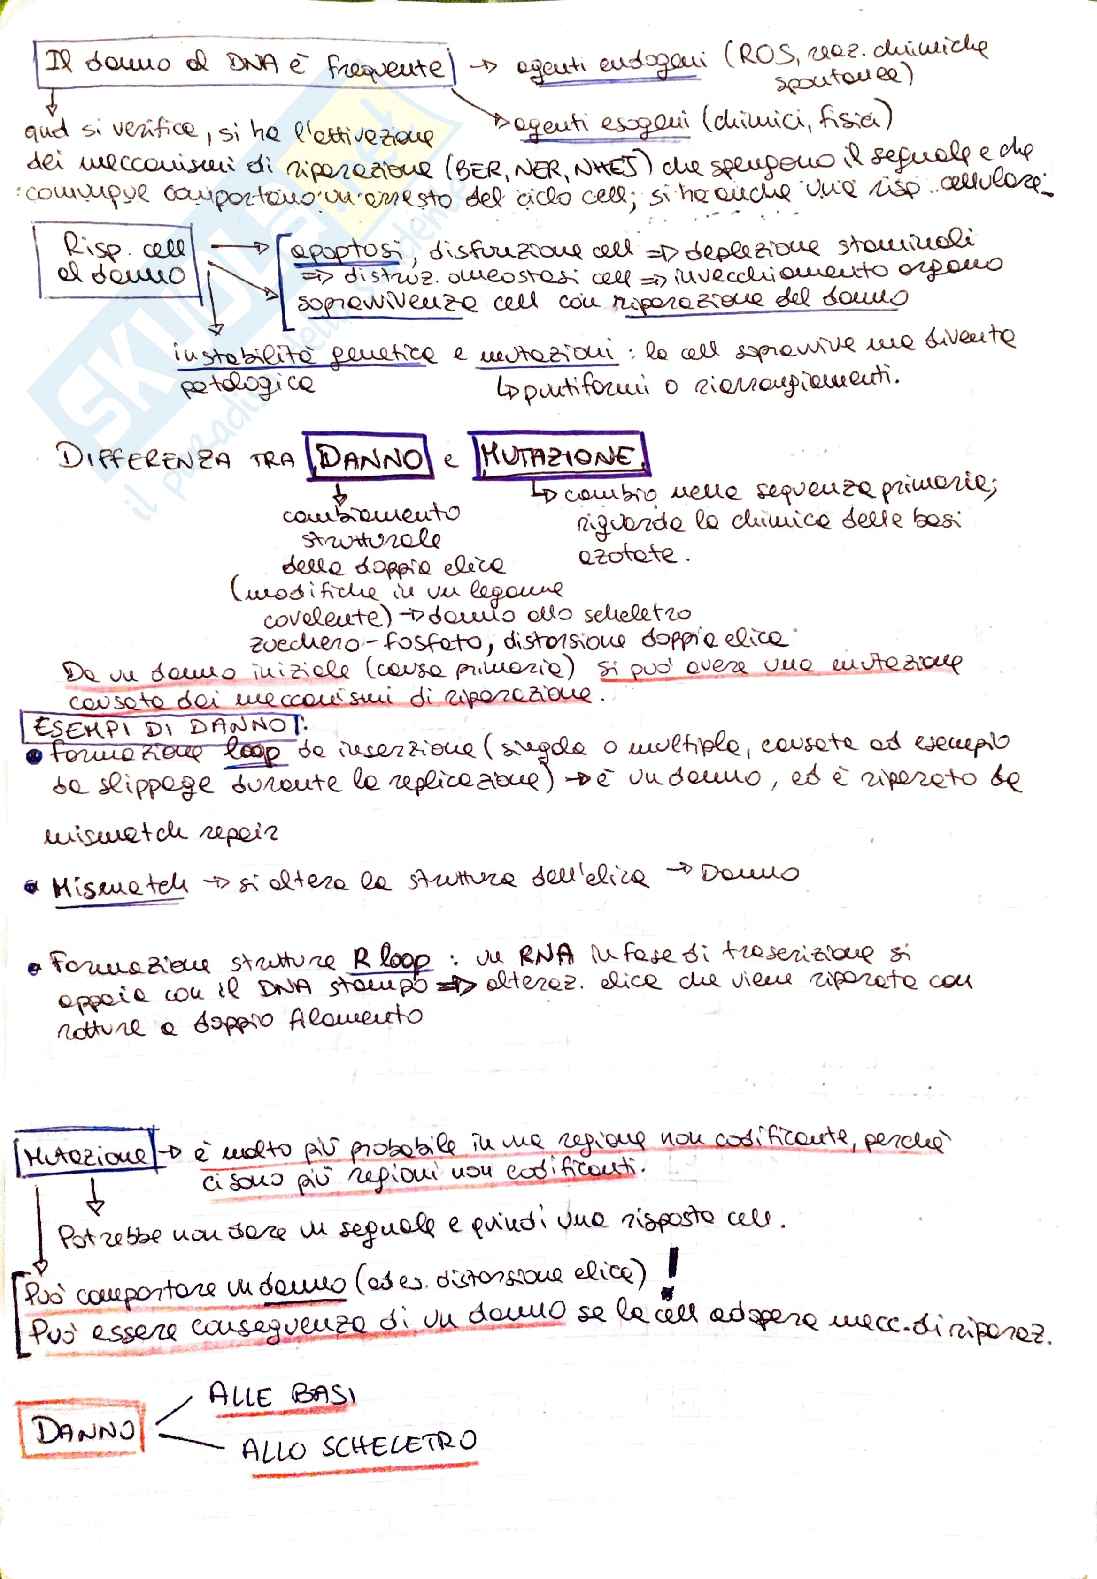 Il danno al DNA è frequente → agenti endogeni (ROS, reaz. chimiche
spontanee)
→ agenti esogeni (chimici, fisici)
qnd si verifica, si ha l'attivazione
dei meccanismi di riparazione (BER, NER, NHEJ) che spengono il segnale e che
comunque comportano un arresto del ciclo cell; si ha anche una risp. cellulare:
Risp. cell
al danno
apoptosi, disfunzione cell ⇒ deplezione staminali
⇒ distruz. omeostasi cell ⇒ invecchiamento organo
sopravvivenza cell con riparazione del danno
instabilità genetica e mutazioni: la cell sopravvive ma diventa
patologica ↳ puntiformi o riarrangiamenti.
DIFFERENZA TRA DANNO e MUTAZIONE
↳ cambio nella sequenza primaria;
riguarda la chimica delle basi
azotate.
cambiamento
strutturale
della doppia elica
(modifiche in un legame
covalente) → danno allo scheletro
zucchero-fosfato, distorsione doppia elica.
Da un danno iniziale (causa primaria) si può avere una mutazione
causata dai meccanismi di riparazione.
ESEMPI DI DANNO:
• Formazione loop da inserzione (singola o multipla, causata ad esempio
da slippage durante la replicazione) → è un danno, ed è riparato da
mismatch repair
• Mismatch → si altera la struttura dell'elica → Danno
• Formazione strutture R loop: un RNA in fase di trascrizione si
appaia con il DNA stampo ⇒ alteraz. elica che viene riparata con
rotture a doppio filamento
Mutazione → è molto più probabile in una regione non codificante, perché
ci sono più regioni non codificanti.
Potrebbe non dare un segnale e quindi una risposta cell.
Può comportare un danno (ad es. distorsione elica) !
Può essere conseguenza di un danno se la cell adopera mecc. di riparaz.
DANNO
ALLE BASI
ALLO SCHELETRO
SKUOLA.net